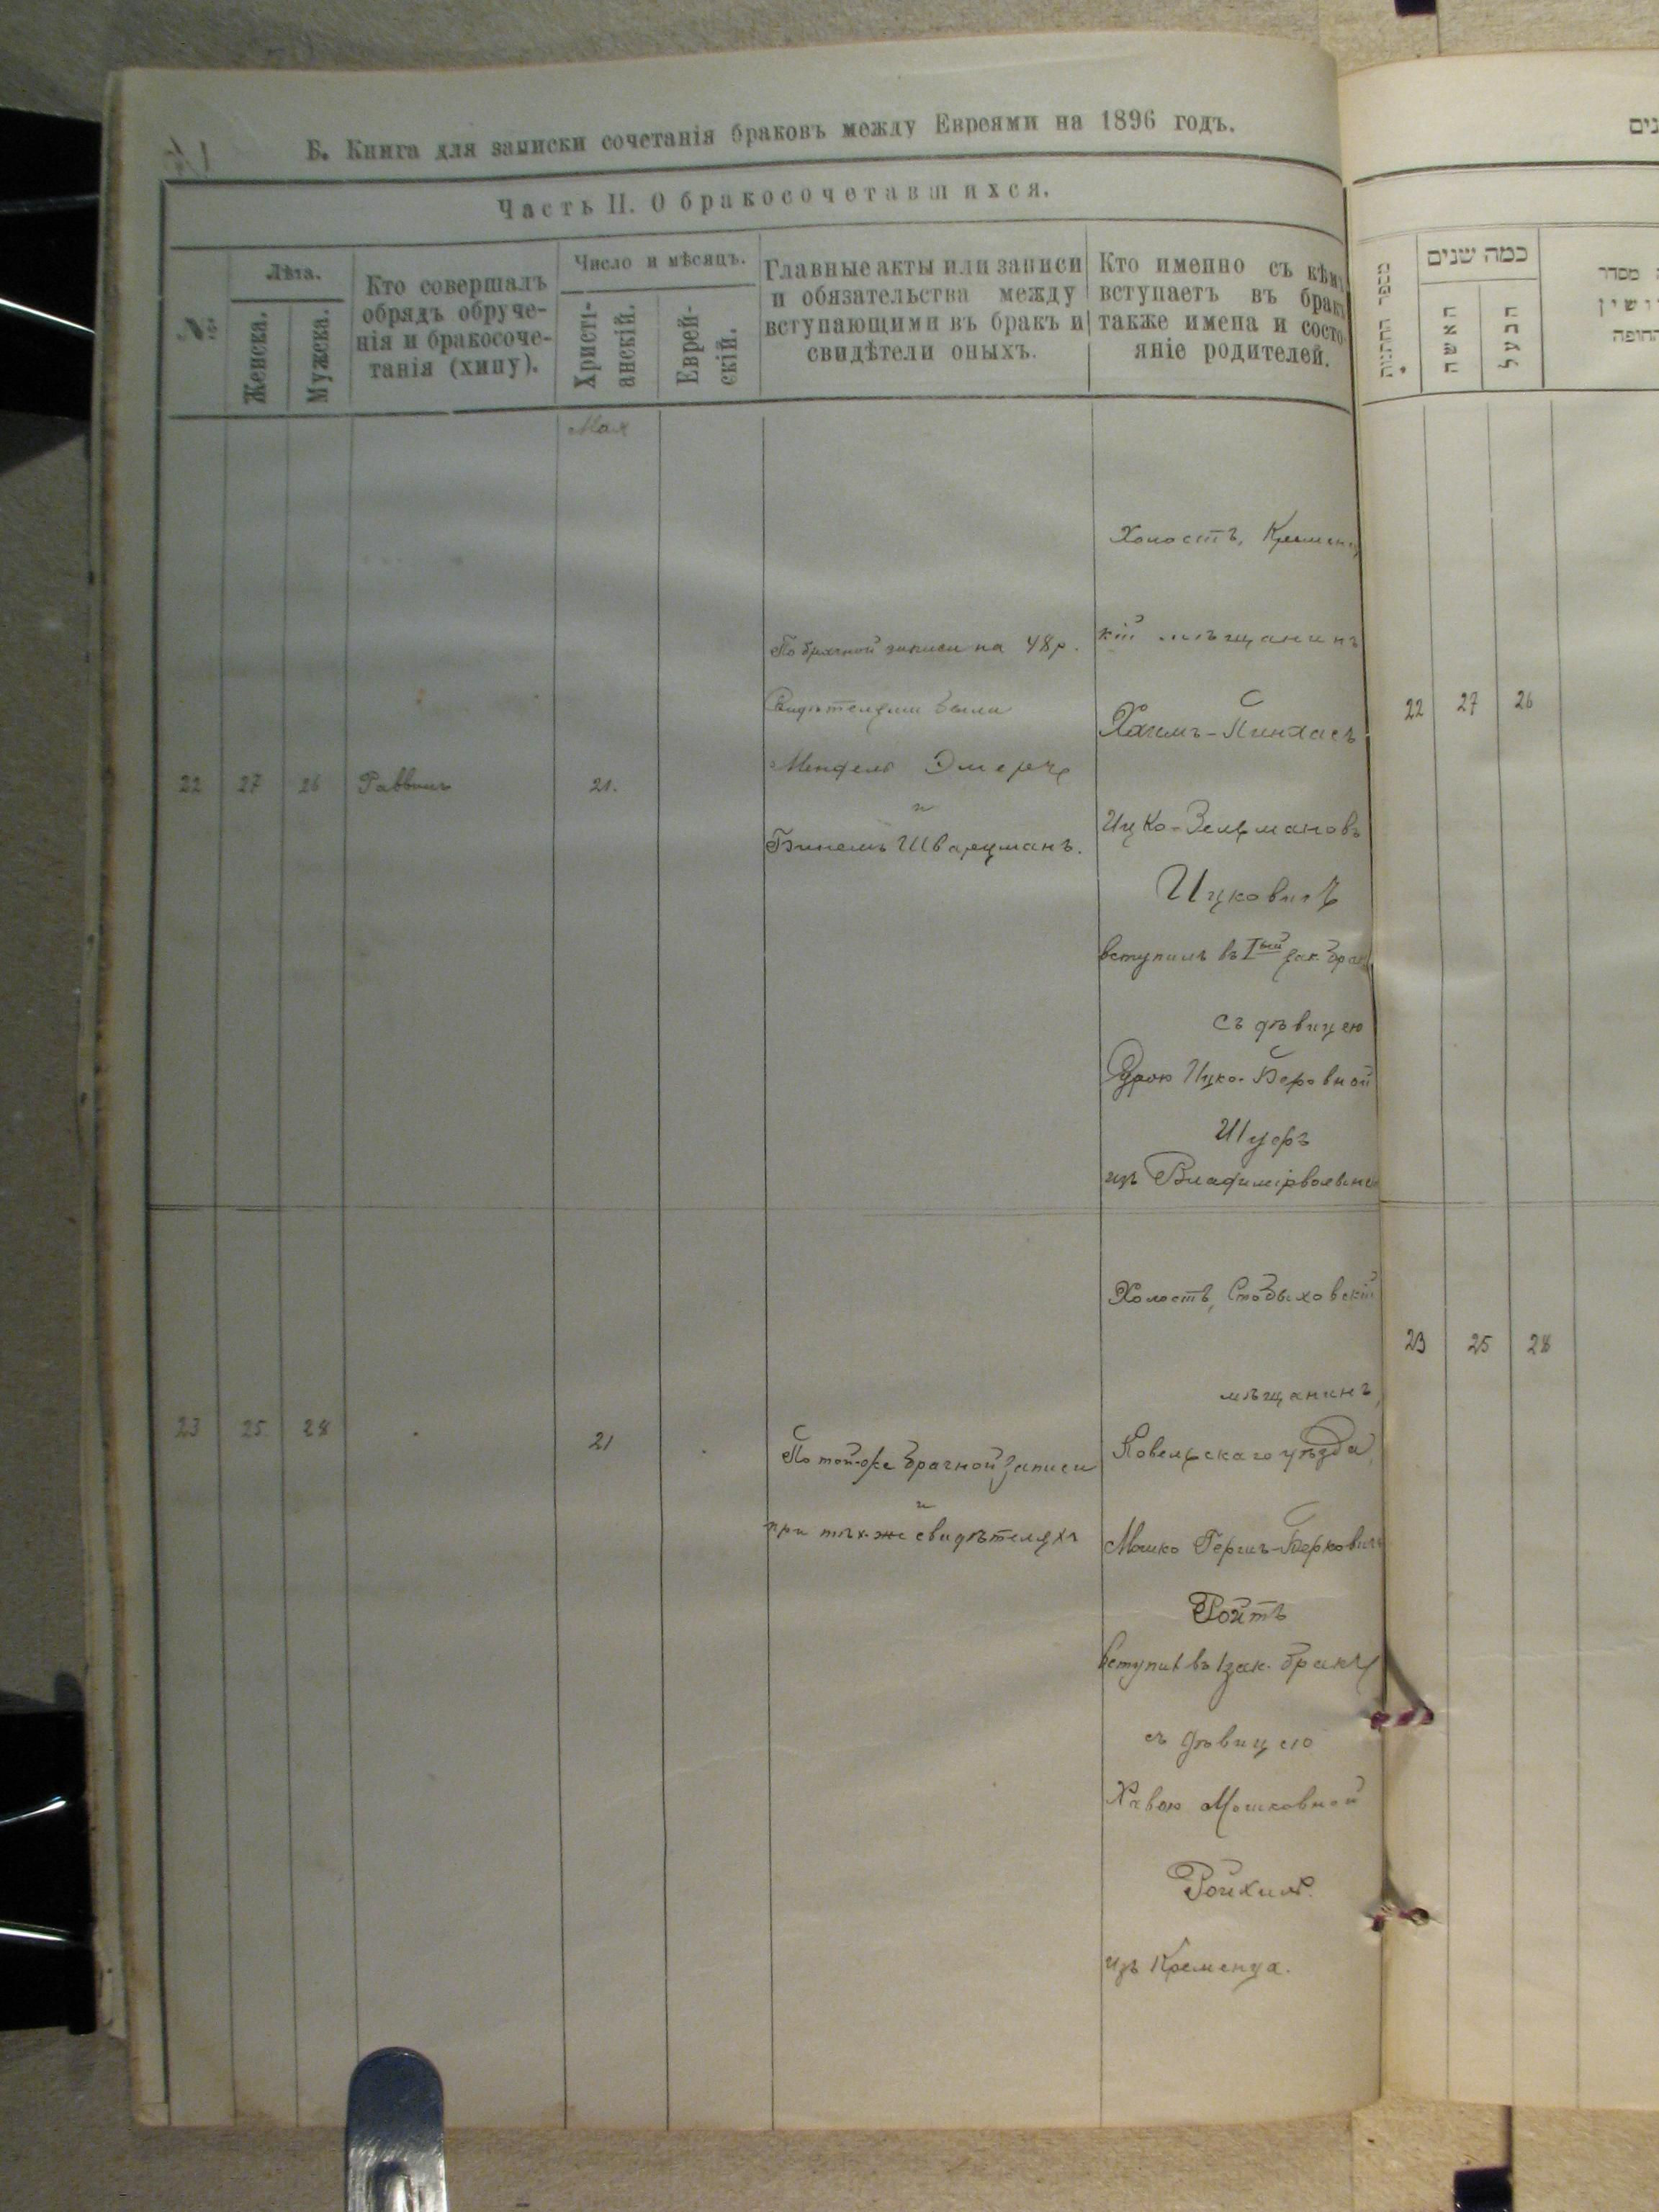 Б. Книга для записки сочетанія браковъ между Евреями на 1896 годъ.
Часть II. О бракосочетавшихся.
№
Лѣта.
Женска.
Мужска.
Кто совершалъ
обрядъ обруче-
нія и бракосоче-
танія (хипу).
Число и мѣсяцъ.
Христі-
анскій.
Еврей-
скій.
Главные акты или записи
и обязательства между
вступающими въ бракъ и
свидѣтели оныхъ.
Кто именно съ кѣмъ
вступаетъ въ бракъ
также имена и состо-
яніе родителей.
Мая
22
27
26
Раввинъ
21.
По брачной записи на 48 р.
Свидѣтелями были
Мендель
и
Бинемъ Шварцманъ.
Холостъ, Кременец
кій мѣщанинъ
Хаимъ-Пинхасъ
Ицко-Зельмановъ
Ицковичъ
вступилъ въ Iвый зак. брак
съ дѣвицею
Сурою Ицко-Беровной
из Владимірволынс
23
25
28
21
По той-же брачной записи
и
при тѣх-же свидѣтеляхъ
Холостъ, Стобыховскій
мѣщанинъ,
Ковельскаго уѣзда,
Мошко Гершъ-Берковичъ
Ройтъ
вступил въ I зак. бракъ
съ дѣвицею
Хавою Мошковной
из Кременца.
כמה שנים
מספר החתונות
האשה
הבעל
מסדר
22
27
26
23
25
28